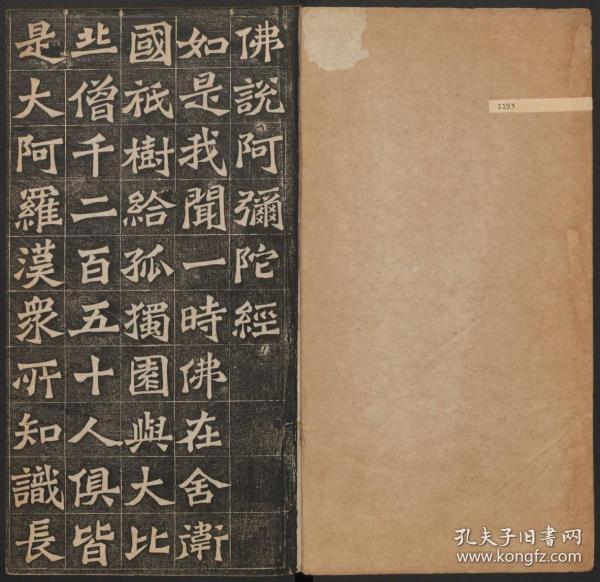 佛說阿彌陀經
如是我聞一時佛在舍衛
國祇樹給孤獨園與大比
丘僧千二百五十人俱皆
是大阿羅漢衆所知識長
1193
孔夫子旧书网
www.kongfz.com